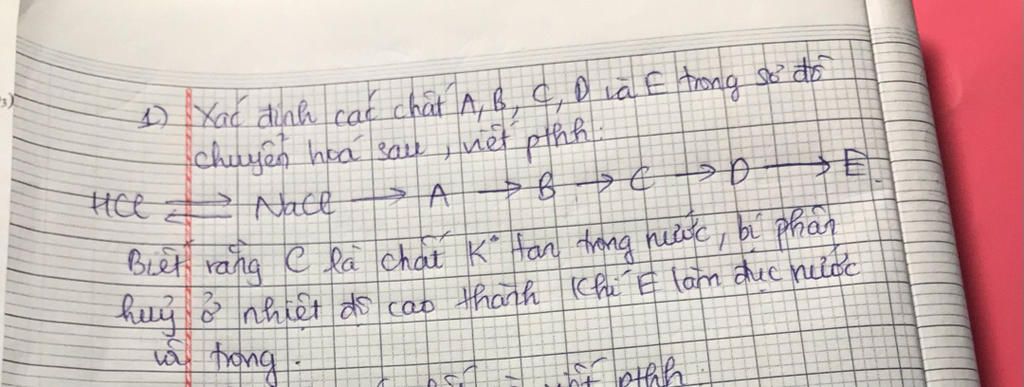 1) Xác định các chất A, B, C, D và E trong sơ đồ
chuyển hoá sau, viết pthh:
HCl ⇌ NaCl → A → B → C → D → E.
Biết rằng C là chất K° tan trong nước, bị phân
huỷ ở nhiệt độ cao thành khí E làm đục nước
vôi trong.
pthh